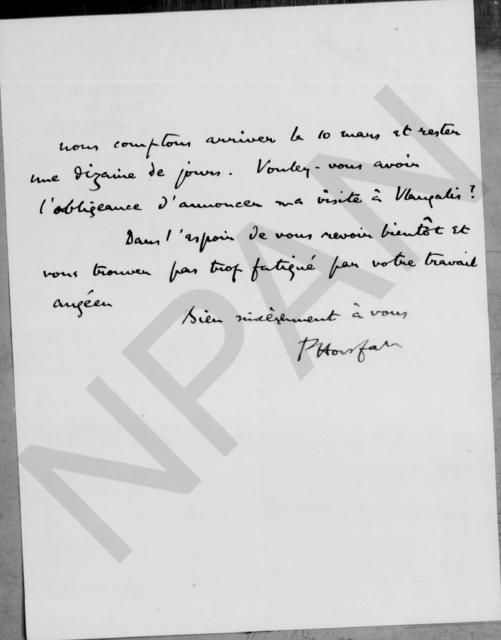 nous comptons arriver le 10 mars et rester
une dizaine de jours. Voulez-vous avoir
l'obligeance d'annoncer ma visite à Vlangalis ?
Dans l'espoir de vous revoir bientôt et
vous trouver pas trop fatigué par votre travail
Bien sincèrement à vous
NPAN